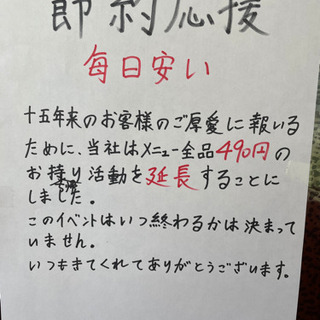 節約応援
毎日安い
十五年来のお客様のご厚愛に報いる
ために、当社はメニュー全品490円の
お得り活動を延長することに
しました。
このイベントはいつ終わるかは決まって
いません。
いつもきてくれてありがとうございます。